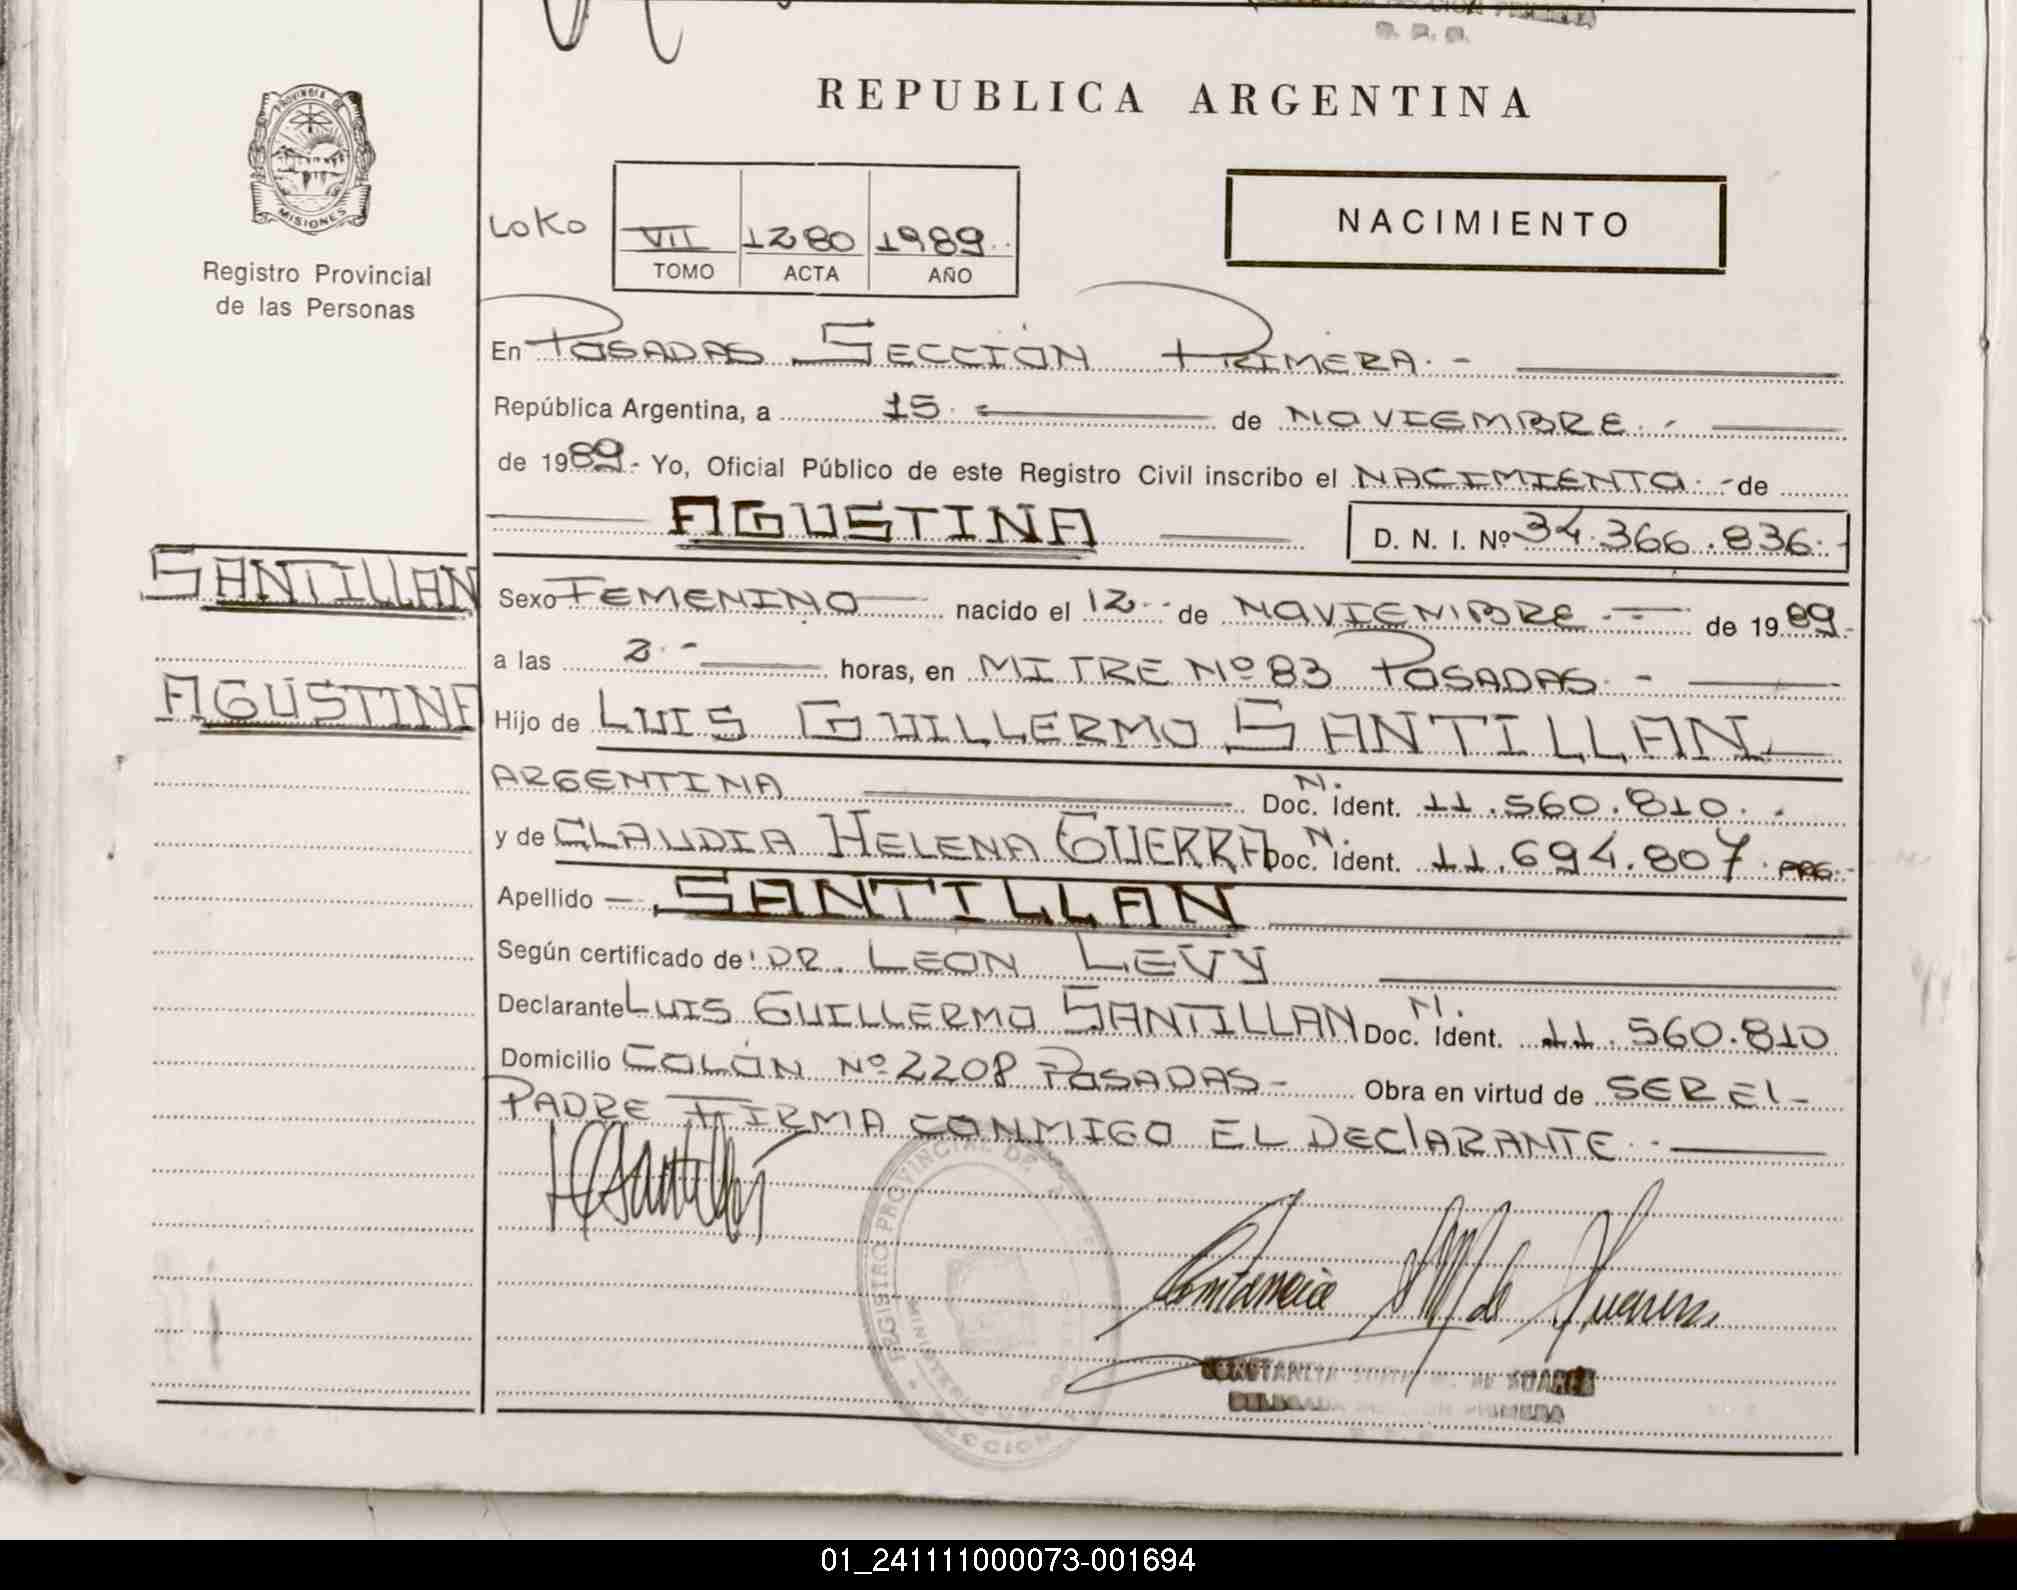 REPUBLICA ARGENTINA
PROVINCIA DE
MISIONES
Registro Provincial
de las Personas
LOKO
VII 1280 1989
TOMO ACTA AÑO
NACIMIENTO
En POSADAS SECCIÓN PRIMERA.-
República Argentina, a 15. de NOVIEMBRE.-
de 1989.- Yo, Oficial Público de este Registro Civil inscribo el NACIMIENTO.- de
AGUSTINA D. N. I. Nº 34.366.836.-
SANTILLAN
AGUSTINA
Sexo FEMENINO nacido el 12.- de NOVIEMBRE.- de 1989.-
a las 2.- horas, en MITRE Nº 83 POSADAS.-
Hijo de LUIS GUILLERMO SANTILLAN
ARGENTINA N. Doc. Ident. 11.560.810.-
y de CLAUDIA HELENA GUERRA N. Doc. Ident. 11.694.807. ARG.-
Apellido — SANTILLAN
Según certificado de: DR. LEON LEVY
Declarante LUIS GUILLERMO SANTILLAN N. Doc. Ident. 11.560.810
Domicilio COLÓN Nº 2208 POSADAS- Obra en virtud de SER EL-
PADRE FIRMA CONMIGO EL DECLARANTE.-
REGISTRO PROVINCIAL DE
CONSTANCIA DE SUAREZ
DELEGADA SECCION PRIMERA
01_241111000073-001694